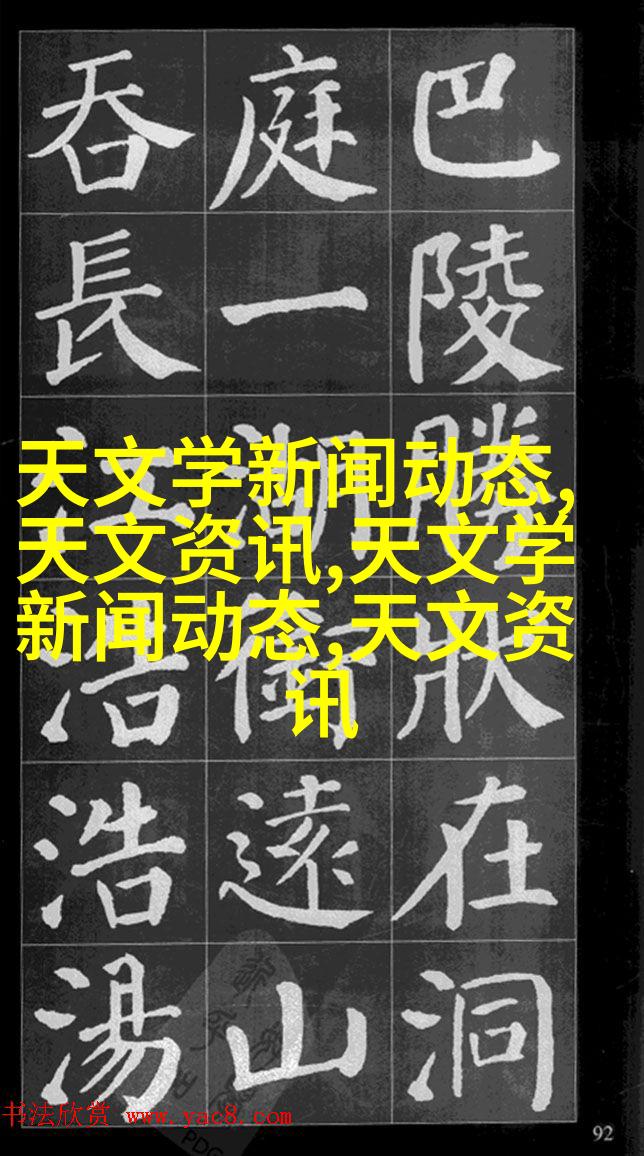 巴陵勝狀在洞
庭一湖銜遠山
吞長江浩浩湯
天文学新闻动态,
天文资讯,天文学
新闻动态,天文资
讯
书法欣赏 www.yac8.com
92
PDG